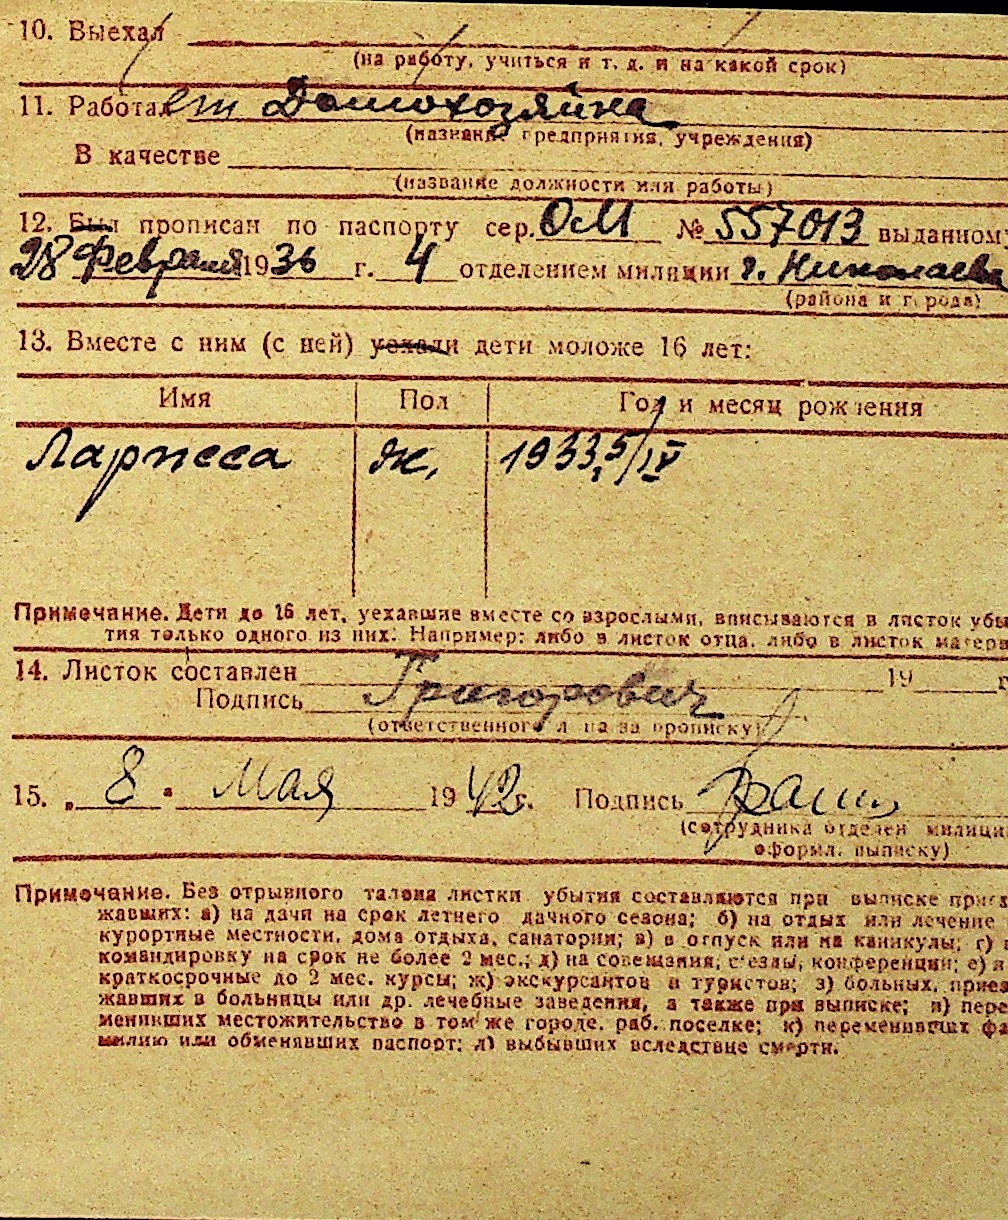 10. Выехал
(на работу, учиться и т. д. и на какой срок)
11. Работал Домохозяйка
(название предприятия, учреждения)
В качестве
(название должности или работы)
12. Был прописан по паспорту сер. ОМ № 557013 выданному
28 февраля 1936 г. 4 отделением милиции г. Николаева
(района и города)
13. Вместе с ним (с ней) уехали дети моложе 16 лет:
Имя Пол Год и месяц рождения
Лариса ж. 1933, 5/IV
Примечание. Дети до 16 лет, уехавшие вместе со взрослыми, вписываются в листок убы-
тия только одного из них. Например: либо в листок отца, либо в листок матери
14. Листок составлен 19 г.
Подпись Григорович
(ответственного лица за прописку)
15. „ 8 " Мая 1942 г. Подпись
(сотрудника отделен милиции
оформл. выписку)
Примечание. Без отрывного талона листки убытия составляются при выписке приез-
жавших: а) на дачи на срок летнего дачного сезона; б) на отдых или лечение
курортные местности, дома отдыха, санатории; в) в отпуск или на каникулы; г) в
командировку на срок не более 2 мес.; д) на совещания, съезды, конференции; е) н
краткосрочные до 2 мес. курсы; ж) экскурсантов и туристов; з) больных, приез-
жавших в больницы или др. лечебные заведения, а также при выписке; и) пере-
менивших местожительство в том же городе, раб. поселке; к) переменивших фа-
милию или обменявших паспорт; л) выбывших вследствие смерти.